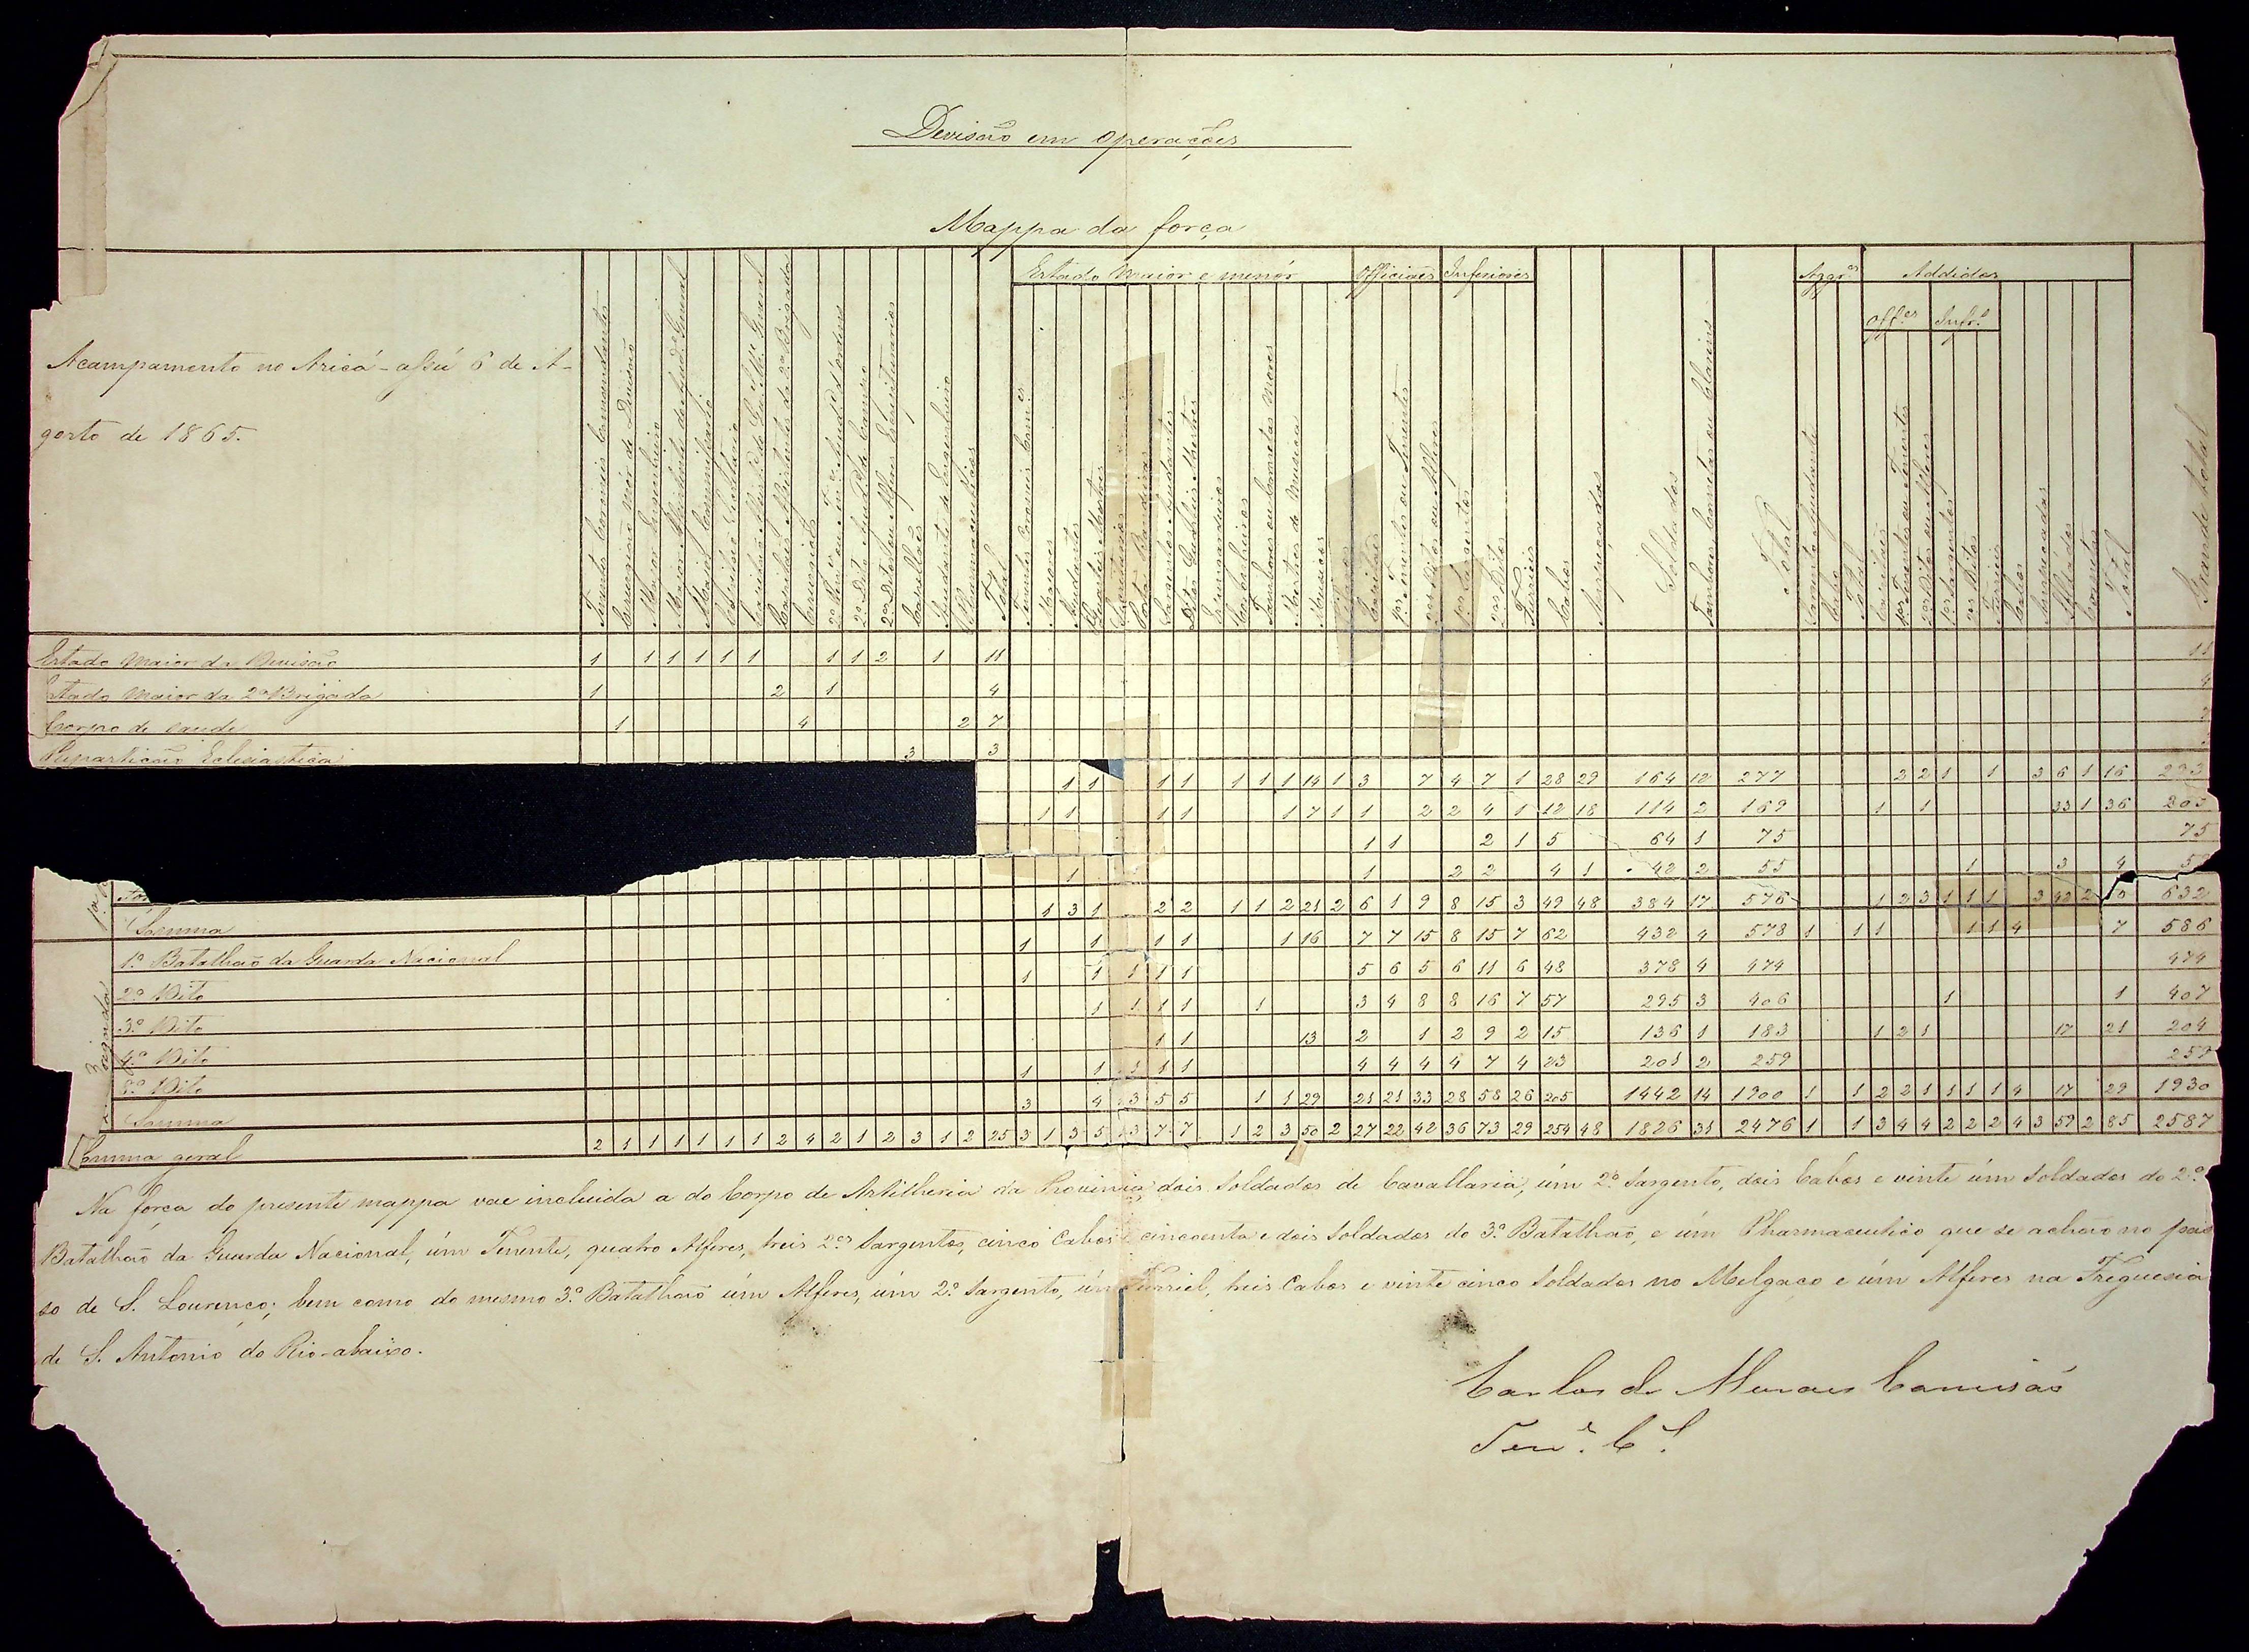 Devisão em operações
Mappa da força
Acampamento no Aricá-assú 6 de A-
gosto de 1865.
Estado Maior e menór
Officiaes
Inferiores
Aggr.os
Addidos
Off.es
Infr.s
Tenentes Coroneis Commandantes
Cirurgião mór de Devisão
Cirurgiões
Capellães
Ajudante de Engenheiro
Pharmaceuticos
Total
Majores
Ajudantes
Quarteis Mestres
Secretarios
Porta Bandeiras
Sargentos Ajudantes
Ditos Quarteis Mestres
Espingardeiros
Tambores ou Cornetas Mores
Mestres de Musica
Musicos
Capitães
1os Tenentes ou Tenentes
2os Ditos ou Alferes
1os Sargentos
2os Ditos
Furrieis
Cabos
Anspeçadas
Soldados
Tambores, Cornetas ou Clarins
Total
Total
Capitães
1os Tenentes ou Tenentes
2os Ditos ou Alferes
1os Sargentos
2os Ditos
Furrieis
Cabos
Anspeçadas
Soldados
Cornetas
Total
Grande total
Estado Maior da Devisão 1 1 1 1 1 1 1 1 2 1 11 11
Estado Maior da 2a Brigada 1 2 1 4 4
Corpo de saude 1 4 2 7
Repartição Eclesiastica 3 3
1 1 1 1 1 1 1 14 1 3 7 4 7 1 28 29 164 12 277 2 2 1 1 3 6 1 16 293
1 1 1 1 1 7 1 1 2 2 4 1 12 18 114 2 169 1 1 33 1 36 205
1 1 2 1 5 64 1 75 75
1 1 2 2 4 1 42 2 55 1 3 4
Somma 1 3 1 2 2 1 1 2 21 2 6 1 9 8 15 3 49 48 384 17 576 1 2 3 1 1 1 3 42 2 632
1º Batalhão da Guarda Nacional 1 1 1 1 1 16 7 7 15 8 15 7 62 432 4 578 1 1 1 1 1 4 7 586
2º Dito 1 1 1 1 1 5 6 5 6 11 6 48 378 4 474 474
3º Dito 1 1 1 1 1 3 4 8 8 16 7 57 295 3 406 1 1 407
4º Dito 1 1 13 2 1 2 9 2 15 136 1 183 1 2 1 17 21 204
5º Dito 1 1 1 1 1 4 4 4 4 7 4 23 201 2 259 259
Somma 3 4 3 5 5 1 1 29 21 21 33 28 58 26 205 1442 14 1900 1 1 2 2 1 1 1 1 4 17 29 1930
Somma geral 2 1 1 1 1 1 1 2 4 2 1 2 3 1 2 25 3 1 3 5 3 7 7 1 2 3 50 2 27 22 42 36 73 29 254 48 1826 31 2476 1 1 3 4 4 2 2 2 4 3 59 2 85 2587
Na força do presente mappa vae incluida a do Corpo de Artilheria da Provincia, dois Soldados de Cavallaria, úm 2º Sargento, dois Cabos e vinte úm Soldados do 2º
Batalhão da Guarda Nacional, úm Tenente, quatro Alferes, treis 2os Sargentos, cinco Cabos e cincoenta e dois Soldados do 3º Batalhão, e úm Pharmaceutico que se achão no pas
so de S. Lourenço; bem como do mesmo 3º Batalhão úm Alferes, úm 2º Sargento, úm Furriel, treis Cabos e vinte cinco Soldados no Melgaço e úm Alferes na Freguesia
de S. Antonio do Rio-abaixo.
Carlos de Moraes Camisão
Tene. Cel